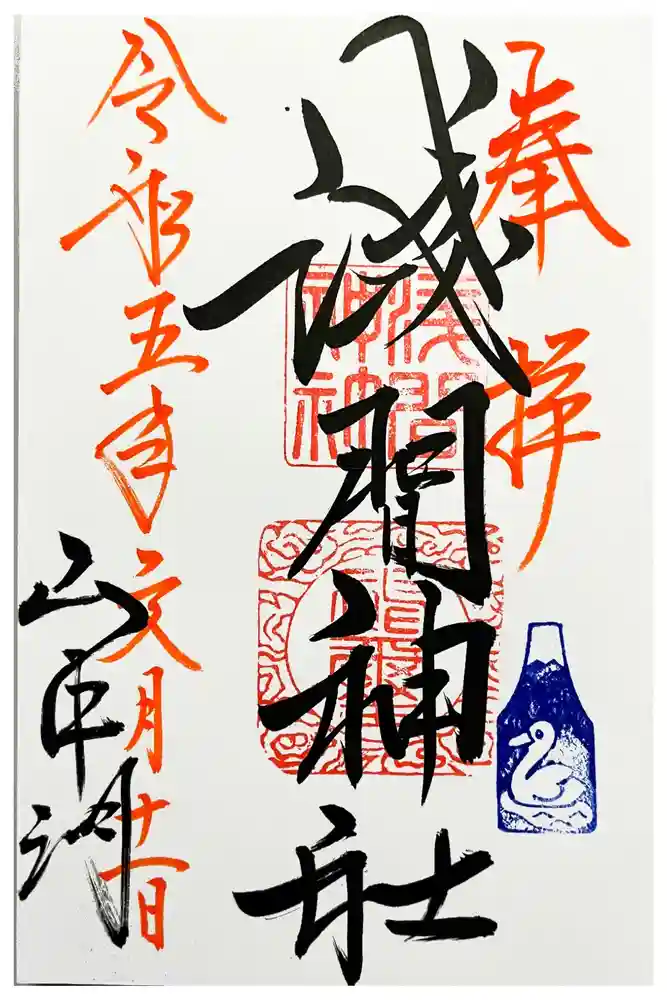 奉拝
浅間神社
浅間
神社
令和五年文月十一日
山中湖